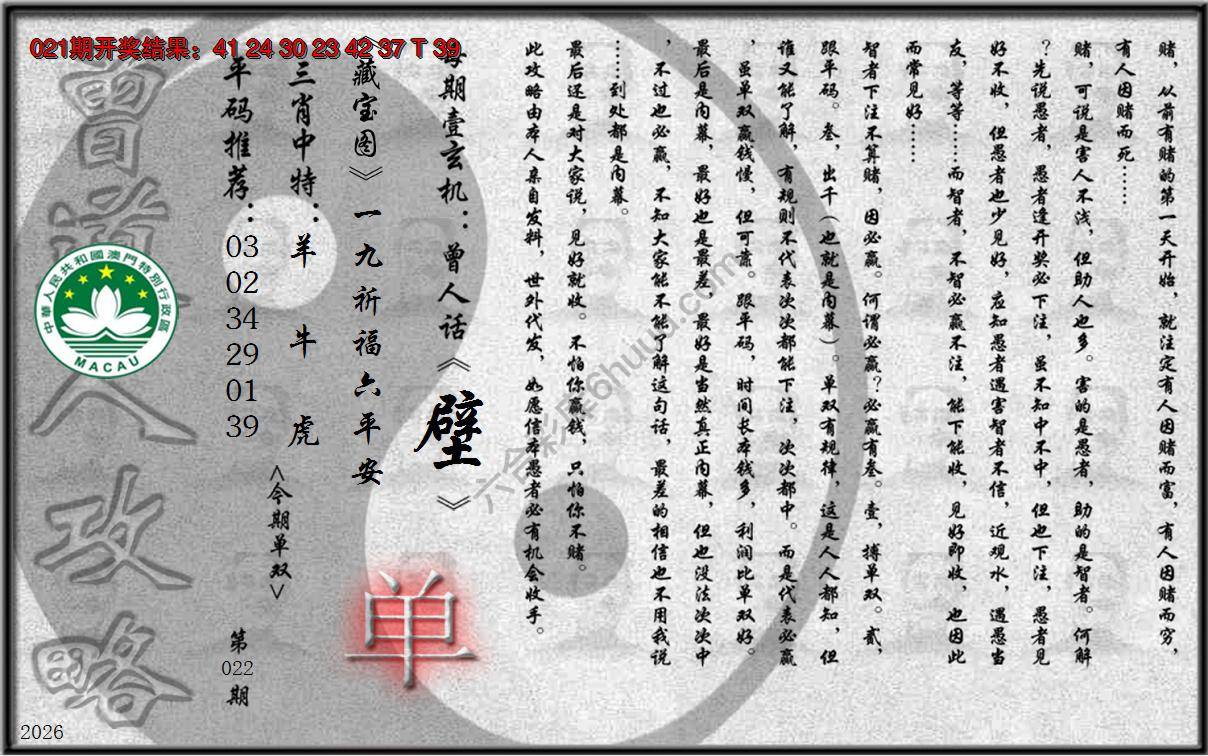 021期开奖结果：41 24 30 23 42 37 T 39
赌，从前有赌的第一天开始，就注定有人因赌而富，有人因赌而穷，
有人因赌而死……
赌，可说是害人不浅，但助人也多。害的是愚者，助的是智者。何解
？先说愚者，愚者逢开奖必下注，虽不知中不中，但也下注，愚者见
好不收，但愚者也少见好，应知愚者遇害智者不信，近观水，遇愚当
友，等等……而智者，不智必赢不注，能下能收，见好即收，也因此
而常见好……
智者下注不算赌，因必赢。何谓必赢？必赢有叁。壹，搏单双。贰，
跟平码。叁，出千（也就是内幕）。单双有规律，这是人人都知，但
谁又能了解，有规则不代表次次都能下注，次次都中。而是代表必赢
，虽单双赢钱慢，但可靠。跟平码，时间长本钱多，利润比单双好。
最后是内幕，最好也是最差，最好是当然真正内幕，但也没法次次中
，不过也必赢，不知大家能不能了解这句话，最差的相信也不用我说
……到处都是内幕。
最后还是对大家说，见好就收。不怕你赢钱，只怕你不赌。
此攻略由本人亲自发料，世外代发，如愿信本愚者必有机会收手。
每期壹玄机：曾人话《壁》
《藏宝图》一九祈福六平安
三肖中特：羊 牛 虎
平码推荐：03 02 34 29 01 39
<今期单双>
单
第022期
曾道人攻略
中華人民共和國澳門特別行政區
MACAU
六合彩库6huuu.com
2026